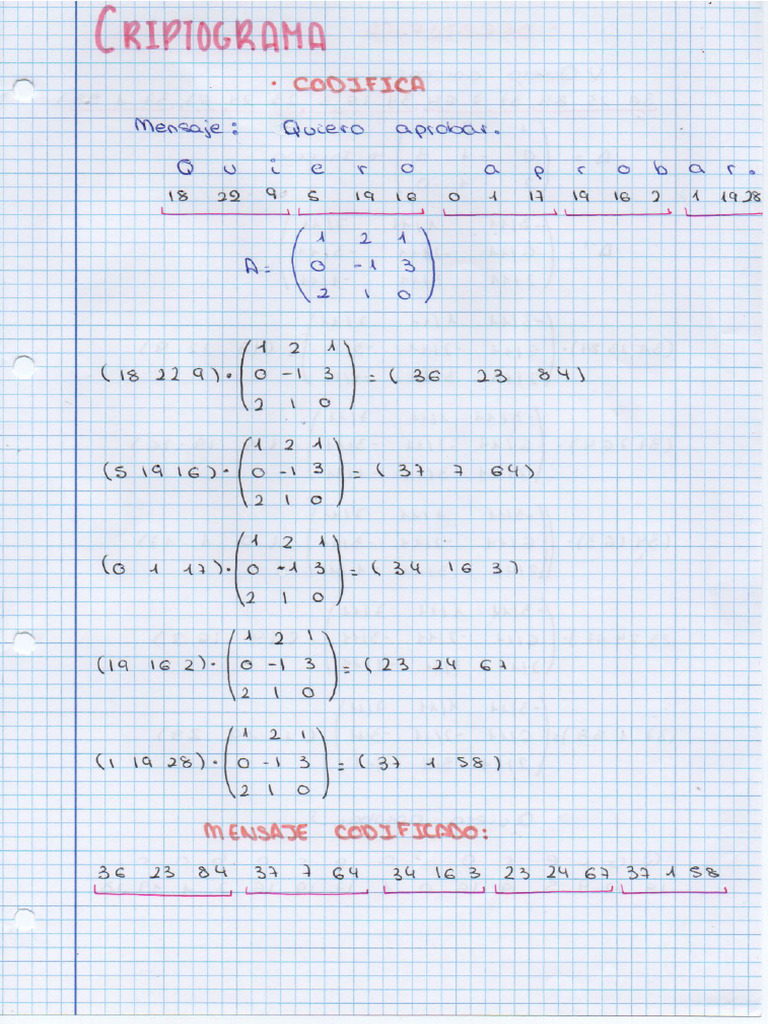 CRIPTOGRAMA
· CODIFICA
Mensaje: Quiero aprobar.
Q u i e r o a p r o b a r.
18 22 9 5 19 16 0 1 17 19 16 2 1 19 28
A = (1 2 1
0 -1 3
2 1 0)
(18 22 9) · (1 2 1
0 -1 3
2 1 0) = (36 23 84)
(5 19 16) · (1 2 1
0 -1 3
2 1 0) = (37 7 64)
(0 1 17) · (1 2 1
0 -1 3
2 1 0) = (34 16 3)
(19 16 2) · (1 2 1
0 -1 3
2 1 0) = (23 24 67
(1 19 28) · (1 2 1
0 -1 3
2 1 0) = (37 1 58)
MENSAJE CODIFICADO:
36 23 84 37 7 64 34 16 3 23 24 67 37 1 58